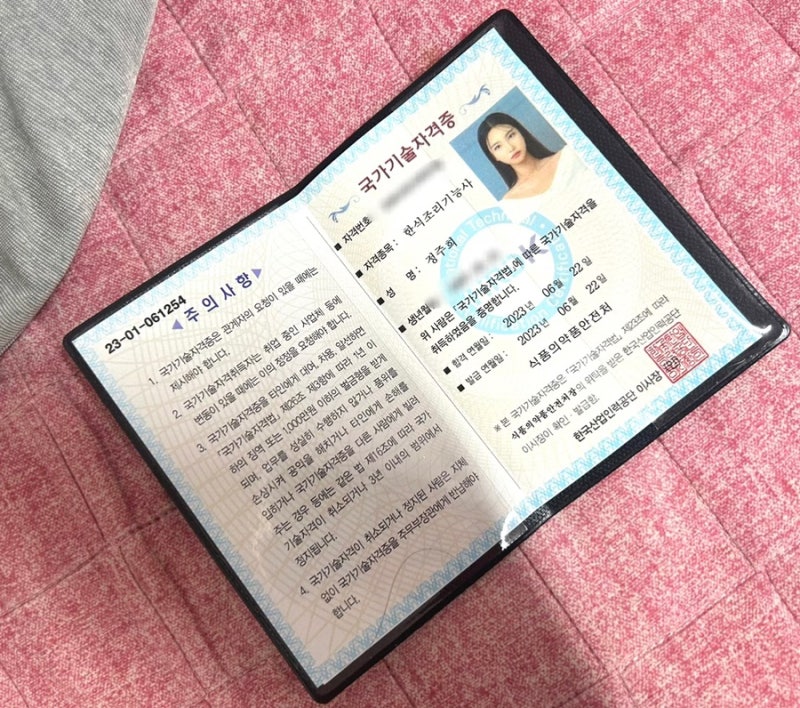 23-01-061254
주의사항
1. 국가기술자격증은 관계자의 요청이 있을 때에는
제시해야 합니다.
2. 국가기술자격취득자는 취업 중인 사업체 등에
변동이 있을 때에는 이의 정정을 요청해야 합니다.
3. 국가기술자격증을 타인에게 대여, 차용, 알선하면
「국가기술자격법」 제26조 제3항에 따라 1년 이
하의 징역 또는 1,000만원 이하의 벌금형을 받게
되며, 업무를 성실히 수행하지 않거나 품위를
손상시켜 공익을 해치거나 타인에게 손해를
입히거나 국가기술자격증을 다른 사람에게 빌려
주는 경우 등에는 같은 법 제16조에 따라 국가
기술자격이 취소되거나 3년 이내의 범위에서
정지됩니다.
4. 국가기술자격이 취소되거나 정지된 사람은 지체
없이 국가기술자격증을 주무부장관에게 반납해야
합니다.
국가기술자격증
■ 자격번호
■ 자격종목 : 한식조리기능사
■ 성 명 : 정주희
■ 생년월
위 사람은 「국가기술자격법」에 따른 국가기술자격을
취득하였음을 증명합니다.
■ 합격 연월일 : 2023년 06월 22일
■ 발급 연월일 : 2023년 06월 22일
식품의약품안전처
※ 본 국가기술자격증은 「국가기술자격법」 제23조에 따라
식품의약품안전처장의 위탁을 받은 한국산업인력공단
이사장이 확인 · 발급함.
한국산업인력공단 이사장